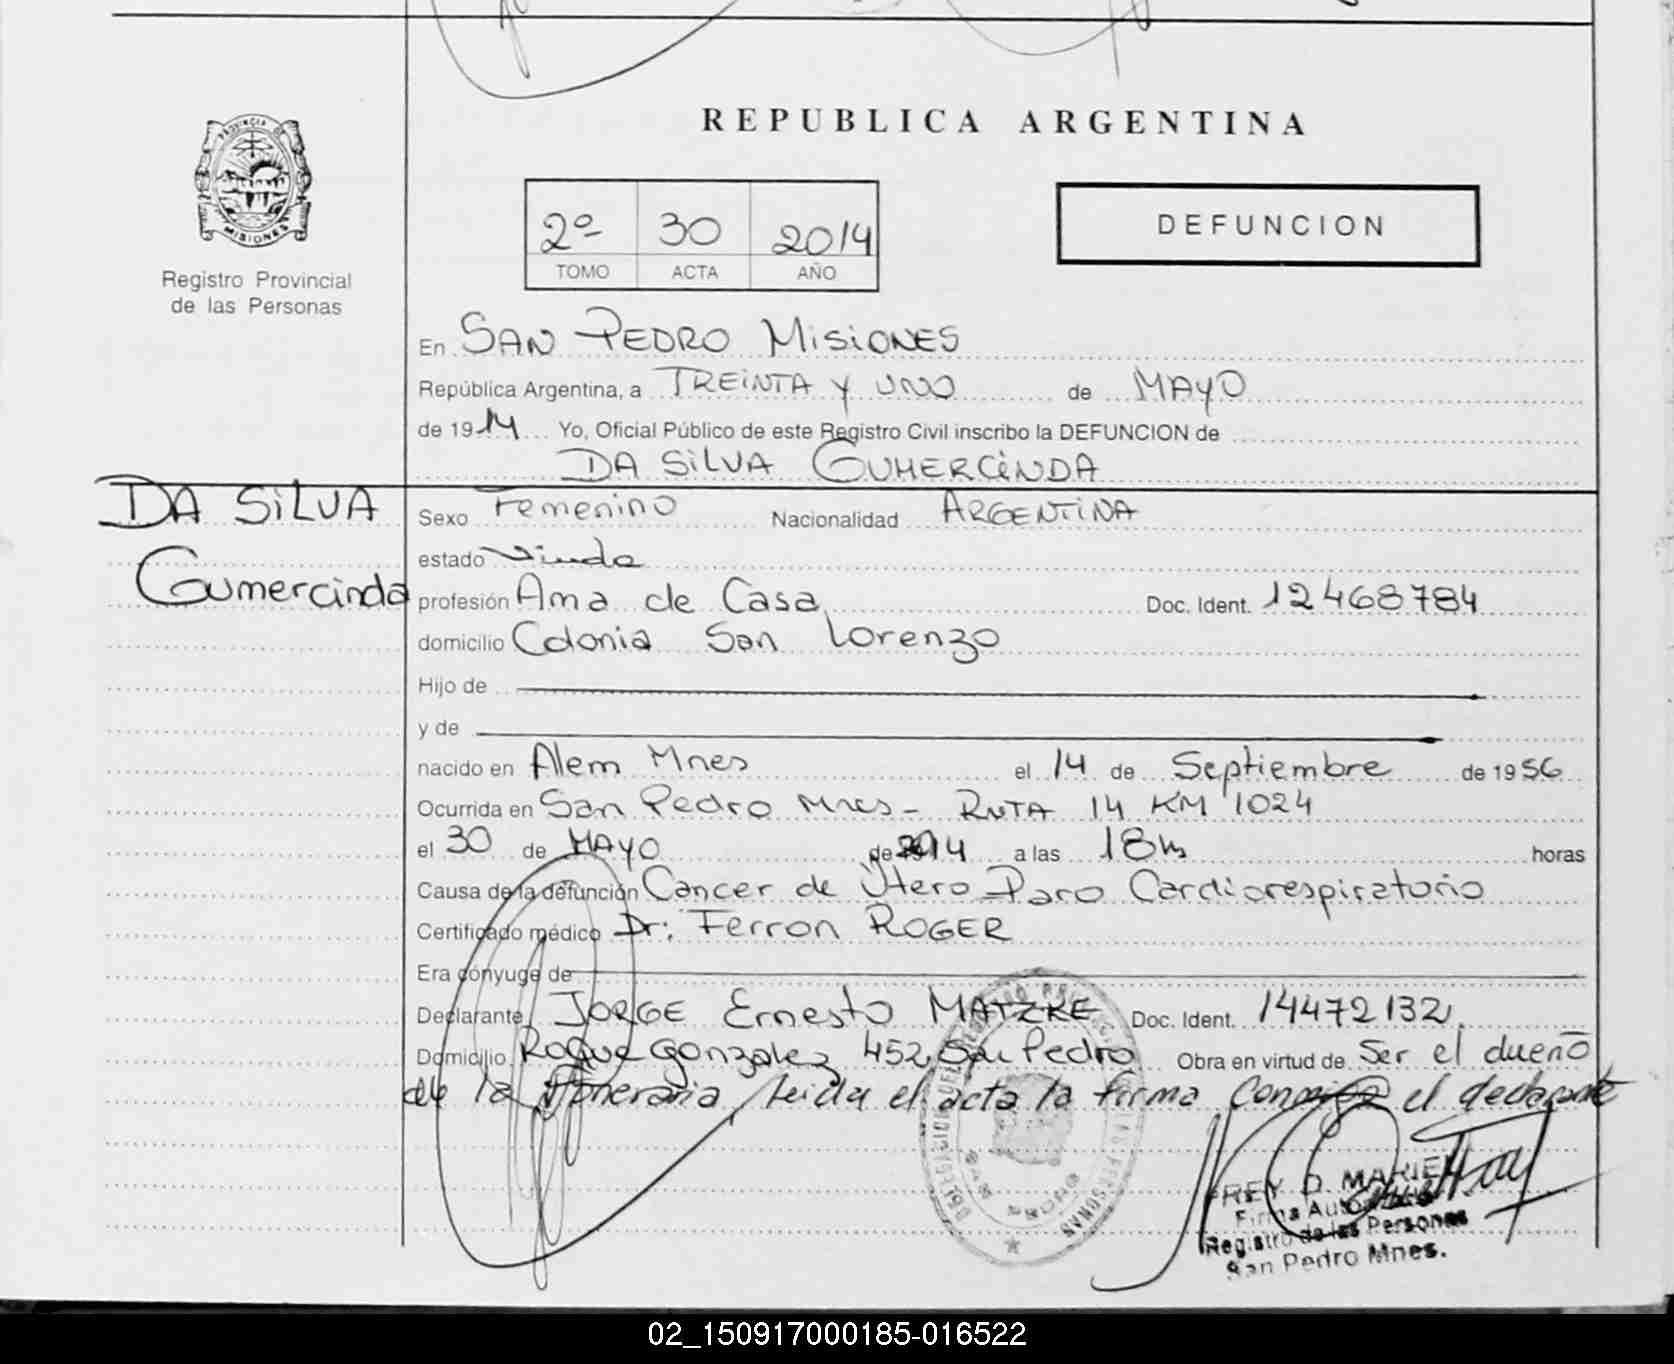 REPUBLICA ARGENTINA
PROVINCIA DE
MISIONES
Registro Provincial
de las Personas
2º 30 2014
TOMO ACTA AÑO
DEFUNCION
En SAN PEDRO MISIONES
República Argentina, a TREINTA Y UNO de MAYO
de 1914 Yo, Oficial Público de este Registro Civil inscribo la DEFUNCION de
DA SILVA GUMERCINDA
DA SILVA
Gumercinda
Sexo Femenino Nacionalidad ARGENTINA
estado Viuda
profesión Ama de Casa Doc. Ident. 12468784
domicilio Colonia San Lorenzo
Hijo de
y de
nacido en Alem Mnes el 14 de Septiembre de 1956
Ocurrida en San Pedro Mnes - RUTA 14 KM 1024
el 30 de MAYO de 2014 a las 18hs horas
Causa de la defunción Cancer de Utero - Paro Cardiorespiratorio
Certificado médico Dr: Ferron ROGER
Era cónyuge de
Declarante JORGE Ernesto MATZKE Doc. Ident. 14472132
Domicilio Roque gonzalez 452 San Pedro Obra en virtud de Ser el dueño
de la funeraria, leida el acta la firma conmigo el declarante
REY D. MARIEL
Firma Autorizada
Registro de las Personas
San Pedro Mnes.
02_150917000185-016522